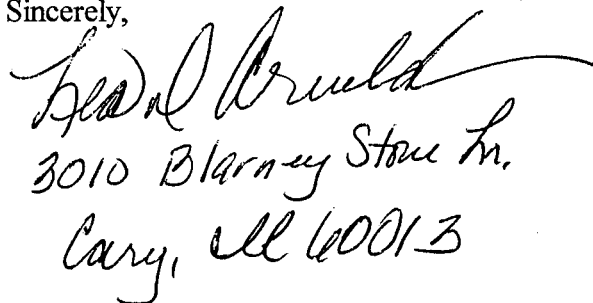 Sincerely,
3010 Blarney Stone Ln.
Cary, Ill 60013